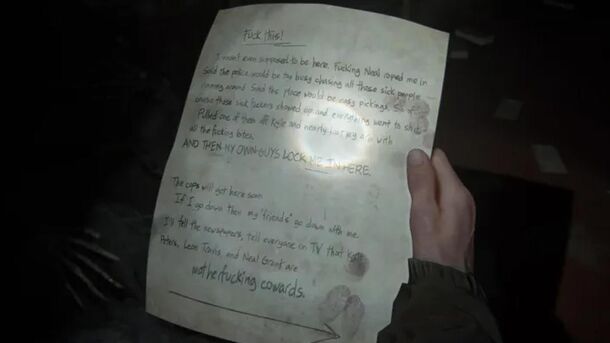 Fuck this!
I wasn't even supposed to be here. Fucking Neal roped me in
Said the police would be too busy chasing all those sick people
running around. Said the place would be easy pickings.
these sick fuckers showed up and everything went to shit.
Pulled one of them off Kyle and nearly lost my arm with
all the fucking bites.
AND THEN MY OWN GUYS LOCK ME IN HERE.
The cops will get here soon
If I go down then my "friends" go down with me.
I'll tell the newspapers, tell everyone in TV that Kyle
Peters, Leon Travis, and Neal Grant are
motherfucking cowards.